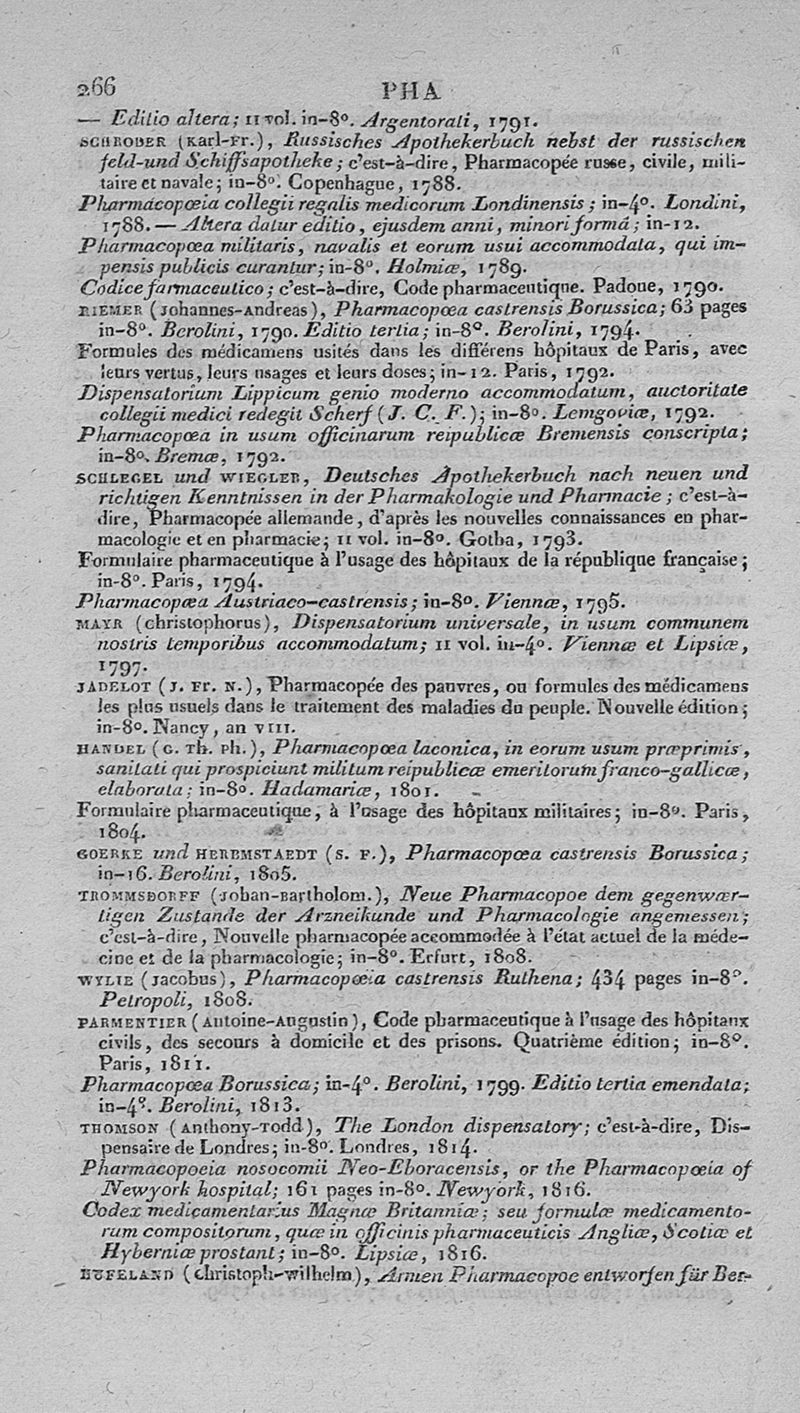 266 PHA
— Editio altera; II vol. in-8°. Argentorati, 1791.
SCHRODER (Karl-Fr.), Russisches Apothekerbuch nebst der russischen
feld-und Schiffsapotheke; c'est-à-dire, Pharmacopée russe, civile, mili-
taire et navale; in-8°. Copenhague, 1788.
Pharmacopœia collegii regalis medicorum Londinensis; in-4°. Londini,
1788. — Altera datur editio, ejusdem anni, minori formâ; in-12.
Pharmacopœa militaris, navalis et eorum usui accommodata, qui im-
pensis publicis curantur; in-8°. Holmiæ, 1789.
Codice farmaceutico; c'est-à-dire, Code pharmaceutique. Padoue, 1790.
RIEMER (Johannes-Andreas), Pharmacopœa castrensis Borussica; 63 pages
in-8°. Berolini, 1790. Editio tertia; in-8°. Berolini, 1794.
Formules des médicamens usités dans les différens hôpitaux de Paris, avec
leurs vertus, leurs usages et leurs doses; in-12. Paris, 1792.
Dispensatorium Lippicum genio moderno accommodatum, auctoritate
collegii medici redegit Scherf (J. C. F.); in-8°. Lemgoviæ, 1792.
Pharmacopœa in usum officinarum reipublicæ Bremensis conscripta;
in-8°. Bremæ, 1792.
SCHLEGEL und WIEGLER, Deutsches Apothekerbuch nach neuen und
richtigen Kenntnissen in der Pharmakologie und Pharmacie; c'est-à-
dire, Pharmacopée allemande, d'après les nouvelles connaissances en phar-
macologie et en pharmacie; II vol. in-8°. Gotha, 1793.
Formulaire pharmaceutique à l'usage des hôpitaux de la république française;
in-8°. Paris, 1794.
Pharmacopœa Austriaco-castrensis; in-8°. Viennæ, 1795.
MAYR (christophorus), Dispensatorium universale, in usum communem
nostris temporibus accommodatum; II vol. in-4°. Viennæ et Lipsiæ,
1797.
JADELOT (J. Fr. N.), Pharmacopée des pauvres, ou formules des médicamens
les plus usuels dans le traitement des maladies du peuple. Nouvelle édition;
in-8°. Nancy, an VIII.
HANDEL (G. Th. Ph.), Pharmacopœa laconica, in eorum usum præprimis,
sanitati qui prospiciunt militum reipublicæ emeritorum franco-gallicæ,
elaborata; in-8°. Hadamariæ, 1801.
Formulaire pharmaceutique, à l'usage des hôpitaux militaires; in-8°. Paris,
1804.
GOERKE und HERBMSTAEDT (S. F.), Pharmacopœa castrensis Borussica;
in-16. Berolini, 1805.
TROMMSDORFF (Johan-Bartholom.), Neue Pharmacopoe dem gegenwær-
tigen Zustande der Arzneikunde und Pharmacologie angemessen;
c'est-à-dire, Nouvelle pharmacopée accommodée à l'état actuel de la méde-
cine et de la pharmacologie; in-8°. Erfurt, 1808.
WYLIE (Jacobus), Pharmacopœia castrensis Ruthena; 434 pages in-8°.
Petropoli, 1808.
PARMENTIER (Antoine-Augustin), Code pharmaceutique à l'usage des hôpitaux
civils, des secours à domicile et des prisons. Quatrième édition; in-8°.
Paris, 1811.
Pharmacopœa Borussica; in-4°. Berolini, 1799. Editio tertia emendata;
in-4°. Berolini, 1813.
THOMSON (Anthony-Todd), The London dispensatory; c'est-à-dire, Dis-
pensaire de Londres; in-8°. Londres, 1814.
Pharmacopoeia nosocomii Neo-Eboracensis, or the Pharmacopœia of
Newyork hospital; 161 pages in-8°. Newyork, 1816.
Codex medicamentarius Magnæ Britanniæ; seu formulæ medicamento-
rum compositorum, quæ in officinis pharmaceuticis Angliæ, Scotiæ et
Hyberniæ prostant; in-8°. Lipsiæ, 1816.
HUFELAND (christoph-wilhelm), Armen Pharmacopoe entworfen für Ber-